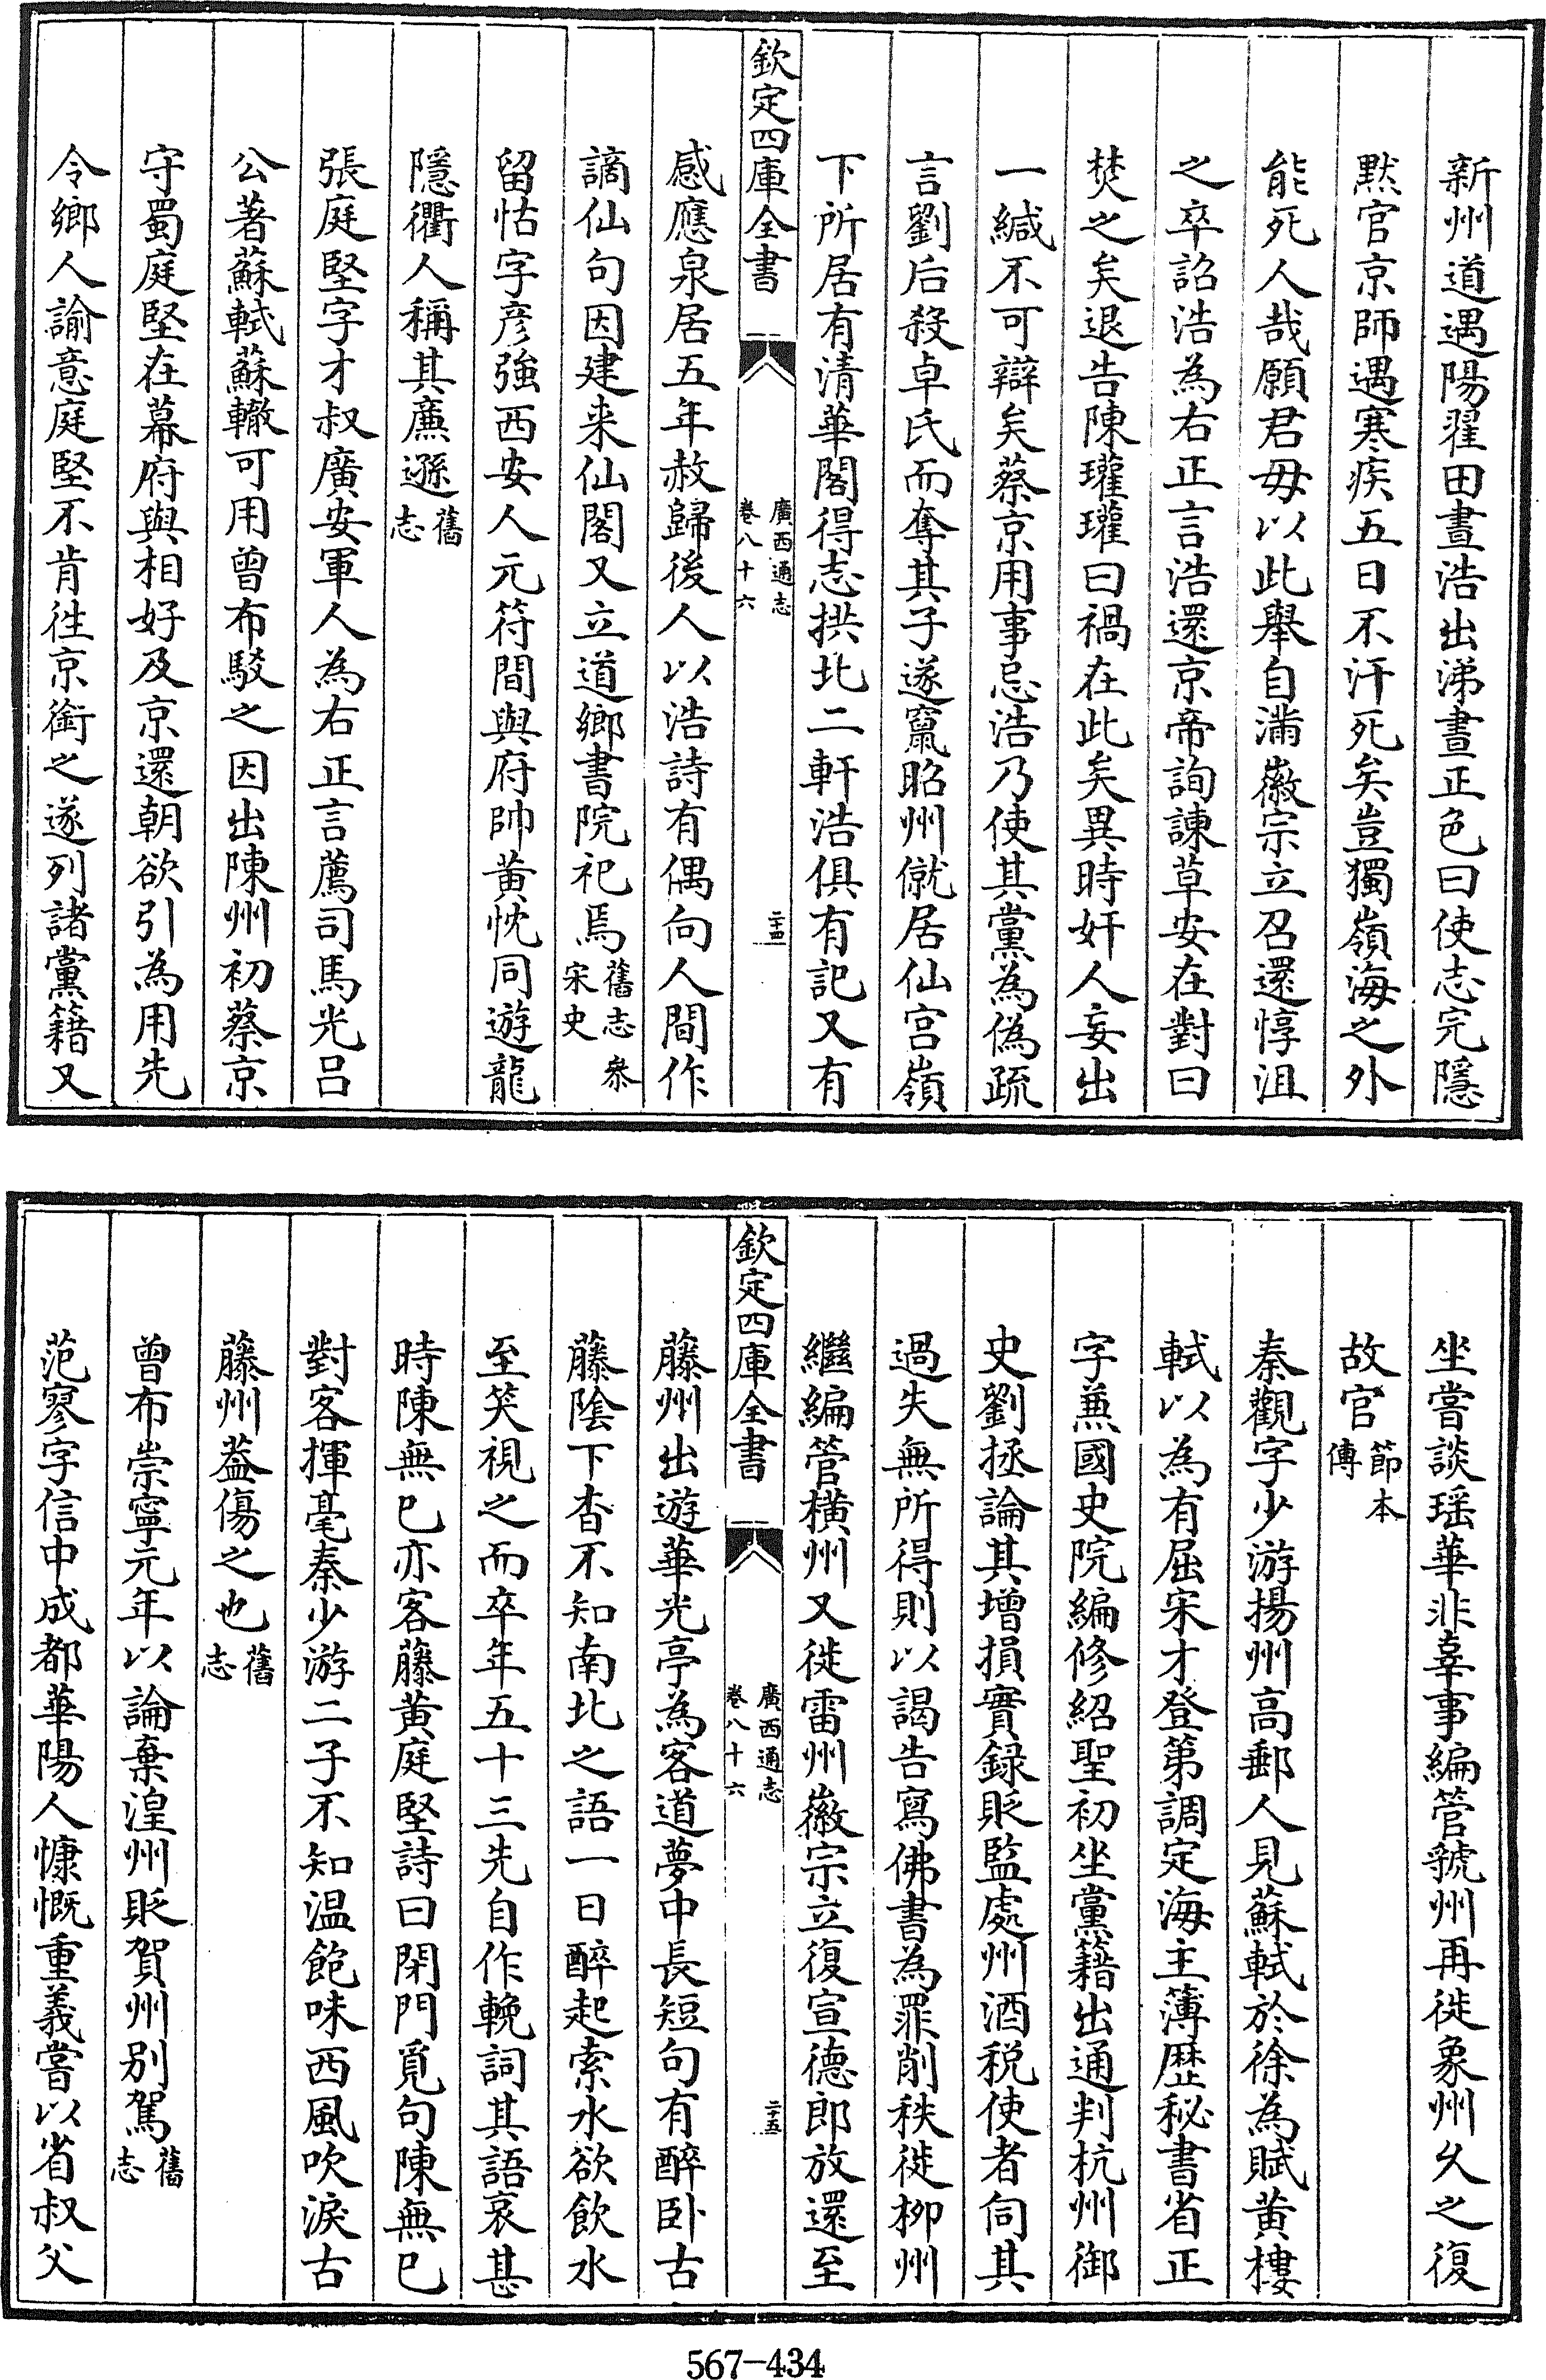 新州道遇陽翟田晝浩出涕晝正色曰使志完隱
黙官京師遇寒疾五日不汗死矣豈獨嶺海之外
能死人哉願君毋以此舉自滿徽宗立召還惇沮
之卒詔浩為右正言浩還京帝詢諫草安在對曰
焚之矣退告陳瓘瓘曰禍在此矣異時奸人妄出
一緘不可辯矣蔡京用事忌浩乃使其黨為偽疏
言劉后殺卓氏而奪其子遂竄昭州僦居仙宫嶺
下所居有清華閣得志拱北二軒浩俱有記又有
欽定四庫全書
廣西通志
卷八十六
二十四
感應泉居五年赦歸後人以浩詩有偶向人間作
謫仙句因建来仙閣又立道鄉書院祀焉舊志叅
宋史
留怙字彦強西安人元符間與府帥黄忱同遊龍
隱衢人稱其亷遜舊
志
張庭堅字才叔廣安軍人為右正言薦司馬光吕
公著蘇軾蘇轍可用曾布駁之因出陳州初蔡京
守蜀庭堅在幕府與相好及京還朝欲引為用先
令鄉人諭意庭堅不肯徃京銜之遂列諸黨籍又
坐嘗談瑶華非辜事編管虢州再徙象州乆之復
故官節本
傳
秦觀字少游揚州高郵人見蘇軾於徐為賦黄樓
軾以為有屈宋才登第調定海主薄歴秘書省正
字兼國史院編修紹聖初坐黨籍出通判杭州御
史劉拯論其增損實録貶監處州酒税使者伺其
過失無所得則以謁告寫佛書為罪削秩徙柳州
繼編管横州又徙雷州徽宗立復宣德郎放還至
欽定四庫全書
廣西通志
卷八十六
二十五
藤州出遊華光亭為客道夢中長短句有醉卧古
藤陰下杳不知南北之語一日醉起索水欲飲水
至笑視之而卒年五十三先自作輓詞其語哀甚
時陳無已亦客藤黄庭堅詩曰閉門覓句陳無已
對客揮毫秦少游二子不知温飽味西風吹淚古
藤州葢傷之也舊
志
曾布崇寧元年以論棄湟州貶賀州别駕舊
志
范寥字信中成都華陽人慷慨重義嘗以省叔父
567-434